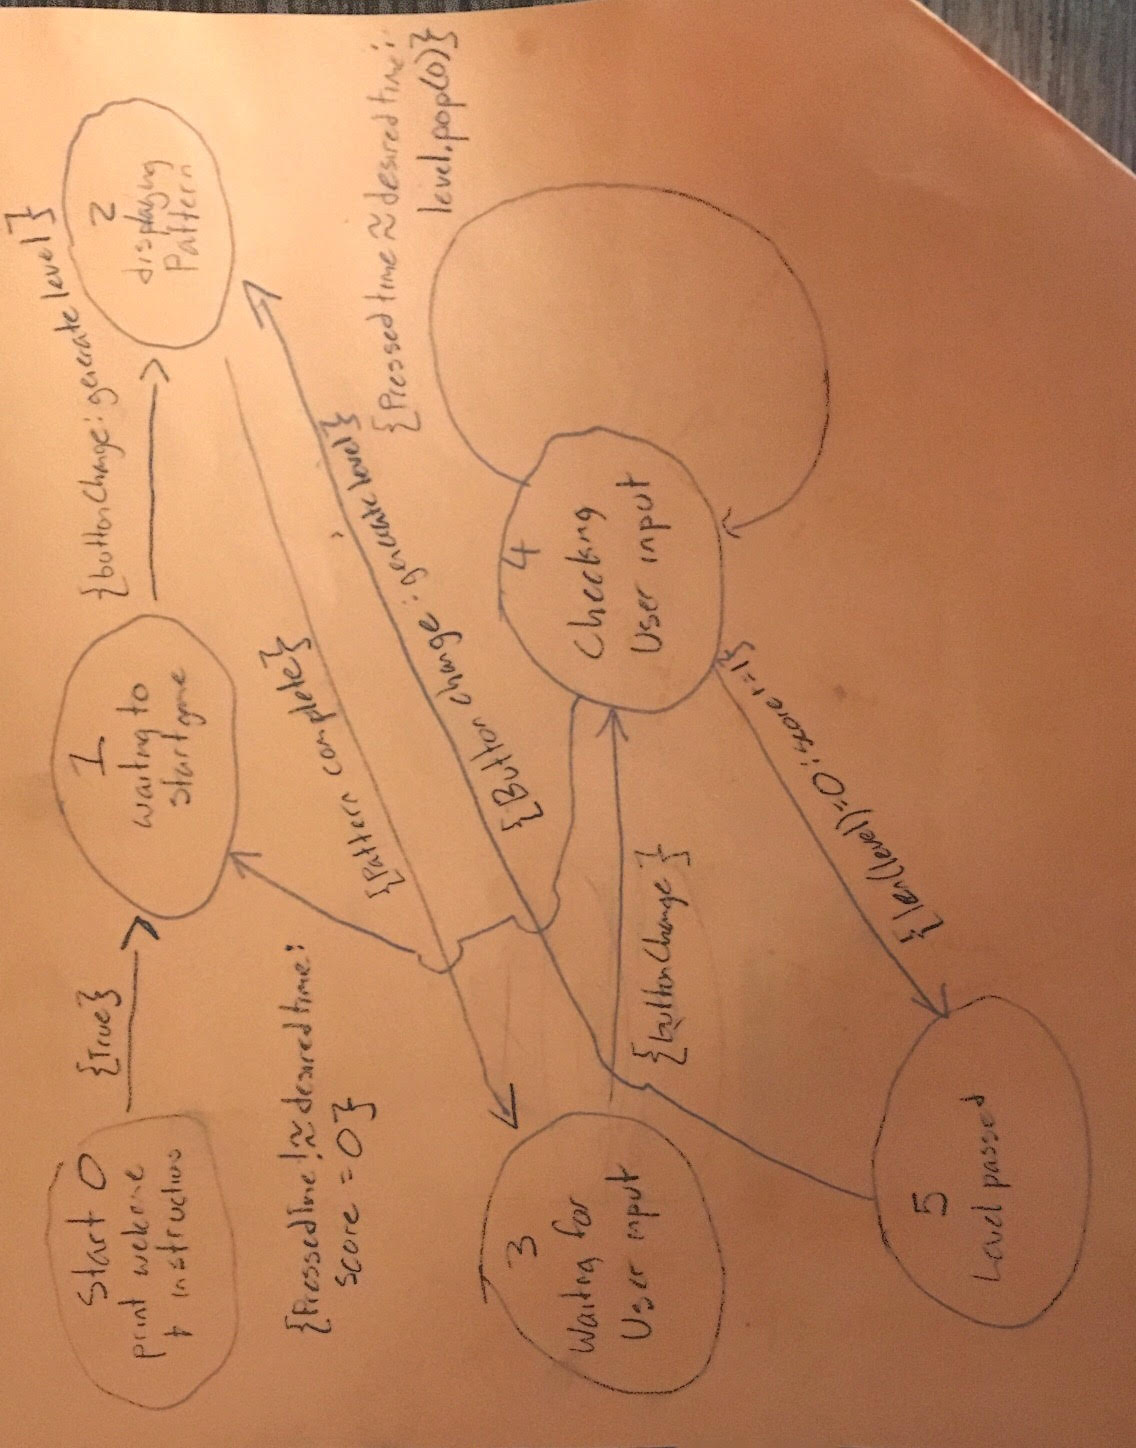 Start 0
print welcome
+ instructions
{True}
1
waiting to
start game
{buttonChange: generate level}
2
displaying
Pattern
{Pressedtime !≈ desired time:
score = 0}
{Pattern complete}
{Button change: generate level}
{Pressed time ≈ desired time:
level.pop(0)}
3
Waiting for
User input
{buttonChange}
4
Checking
User input
{len(level)=0: score+=1}
5
Level passed